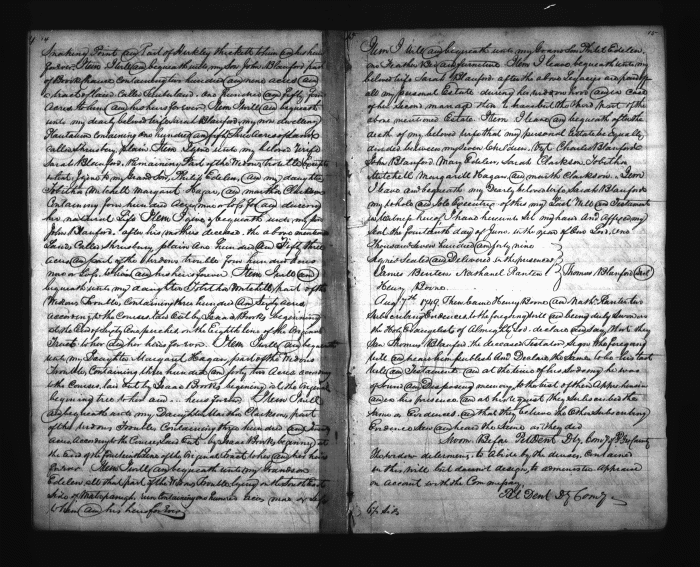 14
Snaking Point and Part of Hirkley thickett to him and his heirs
forever Item I will and bequeath unto my Son John Blanford, part
of Brookchance Containing two hundred and nine acres and
a tract of land Called one hundred and fifty four
acres to him and his heirs for ever Item I will and bequeath
unto my dearly beloved wife Sarah Blanford, my now dwelling
Plantation Containing one hundred and fifty three acres of land
called Shrisbury plain Item I give unto my beloved wife
Sarah Blanford, Remaining Part of the Widows trouble
what I give to my Grand Son, Philip Edelen, and my daughters
Tobitha Mitchell Margaret Hagan, and Martha Clarkson
Containing four hundred Acres more or less and during
her natural Life Item I give and bequeath unto my son
John Blanford, after his mother deceased, the above mentioned
Land Called Shrisbury plain one hundred and Fifty three
acres and part of the Widows trouble four hundred acres
more or Less, to him and his heirs forever Item I will and
bequeath unto my daughter Tobitha Mitchell part of the
Widows Trouble, Containing three hundred and Sixty acres
according to the Courses laid out by Isaac Brooks beginning
at the End of Sixty Six perches on the Eighth line of the Original
Tract to her and her heirs for ever. Item I will and bequeath
unto my Daughter Margaret Hagan, part of the Widows
trouble, Containing three hundred and forty two Acres according
to the Courses, laid out by Isaac Brooks begining at the Original
begining tree to her and heirs forever Item I will
and bequeath unto my Daughter Martha Clarkson, part
of the Widows Trouble Containing three hundred and
acres According to the Courses Laid out by Isaac Brooks begining at
the End of the fourteenth Line of the Original Tract to her and her heirs
forever Item I will and bequeath unto my Grandson
Edelen all that part of the Widows Trouble lying on the South East
Side of Mattapanagh run Containing one hundred Acres more or Less
to him and his heirs for Ever
15
Item I Will and bequeath unto my Grandson Philip Edelen,
one Feather Bed and furniture Item I leave bequeath unto my
beloved wife Sarah Blanford after the above Legacys are paid of
all my personal Estate during her widowhood and in case
of her Second marriage then to have but the third part of the
above mentioned Estate Item I leave and bequeath after the
death of my beloved wife that my personal Estate be equally
divided between my Seven Children Viz. Charles Blanford
John Blanford Mary Edelen, Sarah Clarkson Tobitha
Mitchell Margarell Hagan and Martha Clarkson. Item
I leave and bequeath my Dearly beloved wife Sarah Blanford
my whole and Sole Executrix of this my Last Will and Testament
in Witness hereof I have hereunto set my hand And affixed my
seal the fourteenth day of June in the year of our Lord, One
Thousand Seven hundred and forty nine
Signed Sealed and Delivered in the presence of
James Benten Nathanel Panter Thomas Blanford Seal
Henry Boone
Aug 7th 1749, Then Came Henry Boone and Nathl. Panter two
Subscribing Evidences to the foregoing will and being duly Sworn on
the Holy Evangelist of Almighty God declare and say that they
Saw Thomas Blanford the deceased Testator Sign the foregoing
will and heard him publish And Declare the Same to be his last
will and Testament and at the time of his So doing he was
of Sound and Disposing memory, to the best of their Apprehension
and in his presence and at his request they Subscribed the
Same as Evidences and that they believe the Other Subscribing
Evidence Saw and heard the Same as they did
Sworn Before P. Dent Dty Comry of P Geo County
The widow determins, to Abide by the devises, Contained
in this, will but doesnot design, to Administer Appraise
or Account with the Commissary,
P. Dent Dty Comry